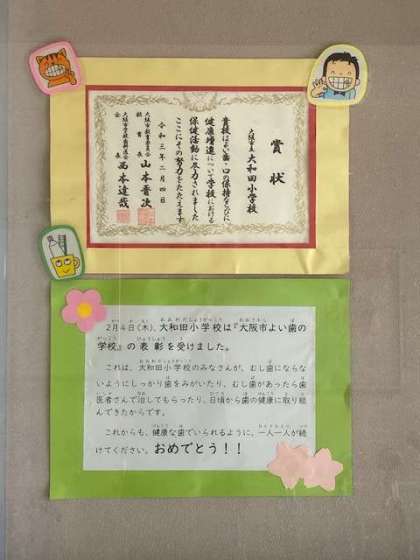 賞状
大阪市立大和田小学校
貴校はよい歯・口の保持ならびに
健康増進について学校における
保健活動に尽力されました
ここにその努力をたたえます
令和三年二月四日
大阪市教育委員会
教育長 山本晋次
大阪市学校歯科医会
会長 西本達哉
2月4日(木)、大和田小学校は『大阪市よい歯の
学校』の表彰を受けました。
これは、大和田小学校のみなさんが、むし歯になら
ないようにしっかり歯をみがいたり、むし歯があったら歯
医者さんで治してもらったり、日頃から歯の健康に取り組
んできたからです。
これからも、健康な歯でいられるように、一人一人が続
けてください。おめでとう！！